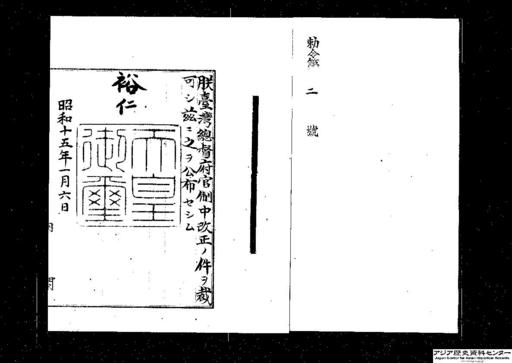 勅令第二號
朕臺灣總督府官制中改正ノ件ヲ裁
可シ茲ニ之ヲ公布セシム
裕仁
天皇御璽
昭和十五年一月六日
内閣
アジア歴史資料センター
Japan Center for Asian Historical Records